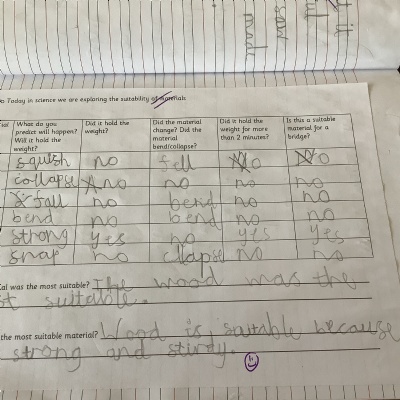 t it
ul
saw
mad
o Today in science we are exploring the suitability of materials
ial What do you predict will happen? Will it hold the weight? Did it hold the weight? Did the material change? Did the material bend/collapse? Did it hold the weight for more than 2 minutes? Is this a suitable material for a bridge?
squish no fell No No
collapse no no no no
fall no bend no no
bend no bend no no
strong yes no yes yes
snap no clapse no no
ial was the most suitable? The wood was the
st suitable.
the most suitable material? Wood is suitable because
strong and stirdy.